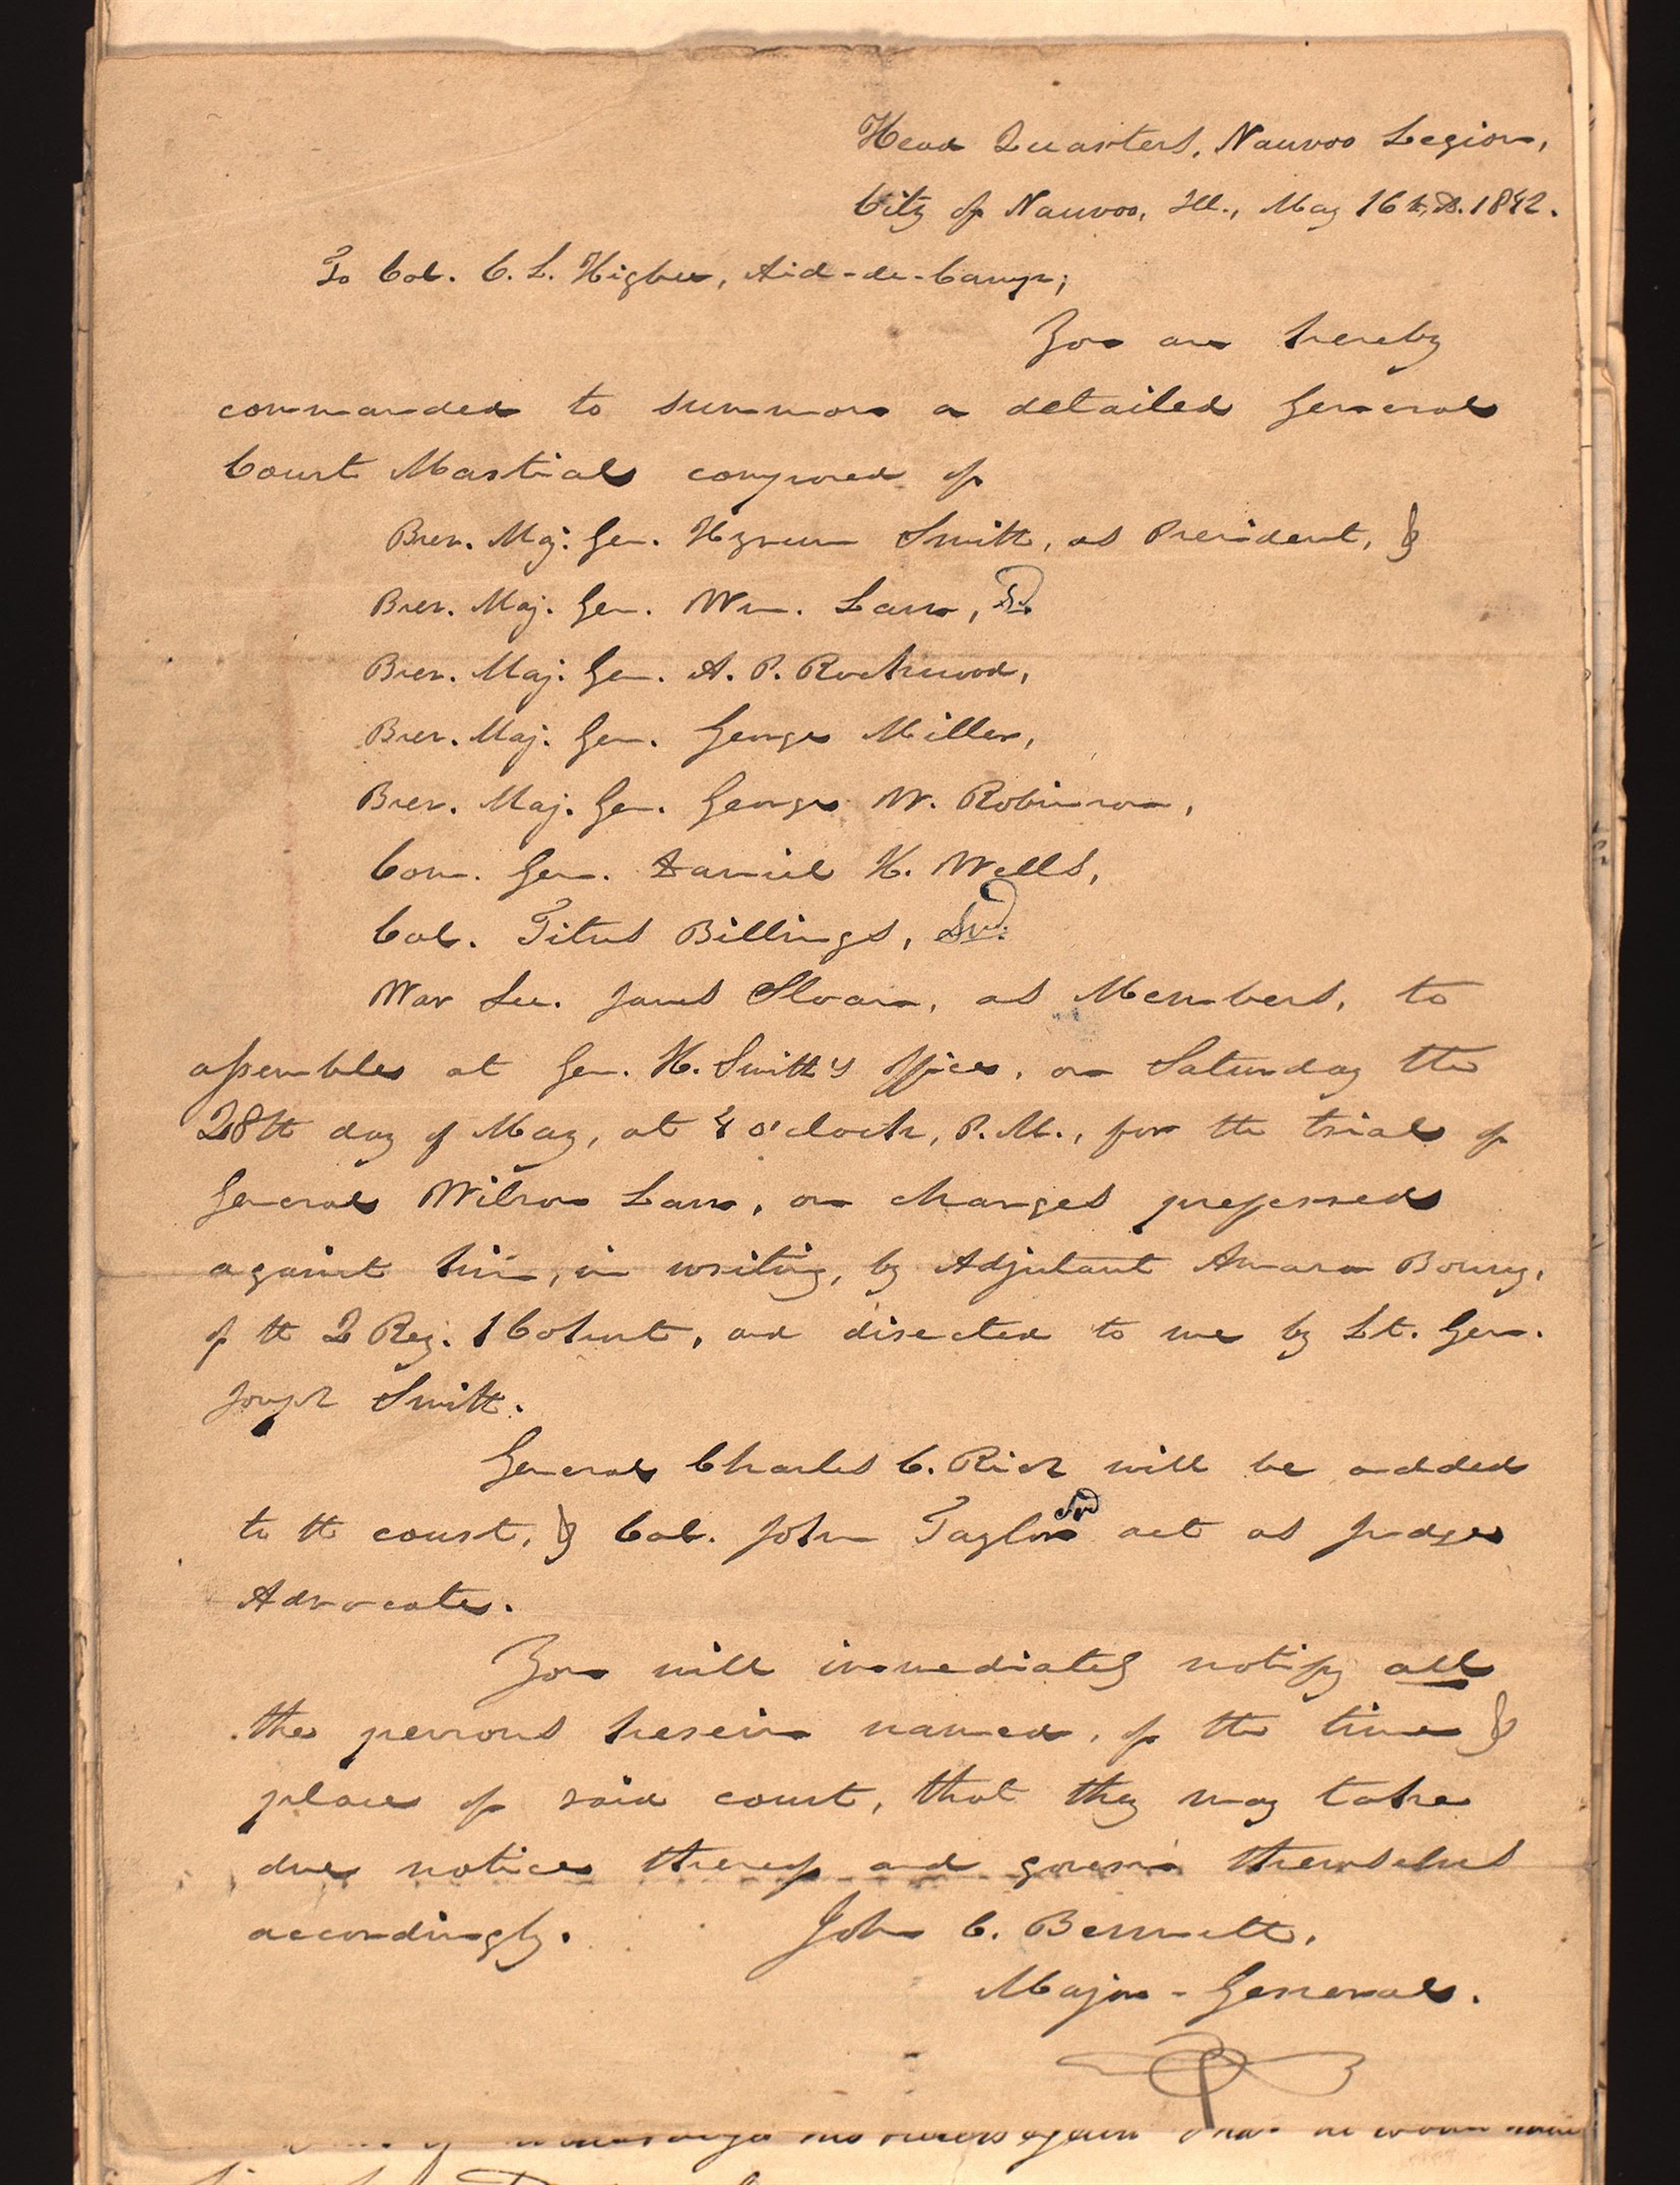 Head Quarters, Nauvoo Legion,
City of Nauvoo, Ill., May 16 A.D. 1842.
To Col. C. L. Higbee, Aid-de-Camp;
You are hereby
commanded to summon a detailed General
Court Martial composed of
Brev. Maj. Gen. Hyrum Smith, as President, &
Brev. Maj. Gen. Wm. Law, Svd.
Brev. Maj. Gen. A. P. Rockwood,
Brev. Maj. Gen. George Miller,
Brev. Maj. Gen. George W. Robinson,
Com. Gen. Daniel H. Wells,
Col. Titus Billings, Svd.
War Sec. James Sloan, as Members, to
assemble at Gen. H. Smith's office, on Saturday the
28th day of May, at 4 o'clock, P.M., for the trial of
General Wilson Law, on charges preferred
against him, in writing, by Adjutant Amara Bonny,
of the 2 Reg. 1 Cohort, and directed to me by Lt. Gen.
Joseph Smith.
General Charles C. Rich will be added
to the court, & Col. John Taylor Svd act as Judge
Advocate.
You will immediately notify all
the persons herein named, of the time &
place of said court, that they may take
due notice thereof and govern themselves
accordingly. John C. Bennett,
Major-General.